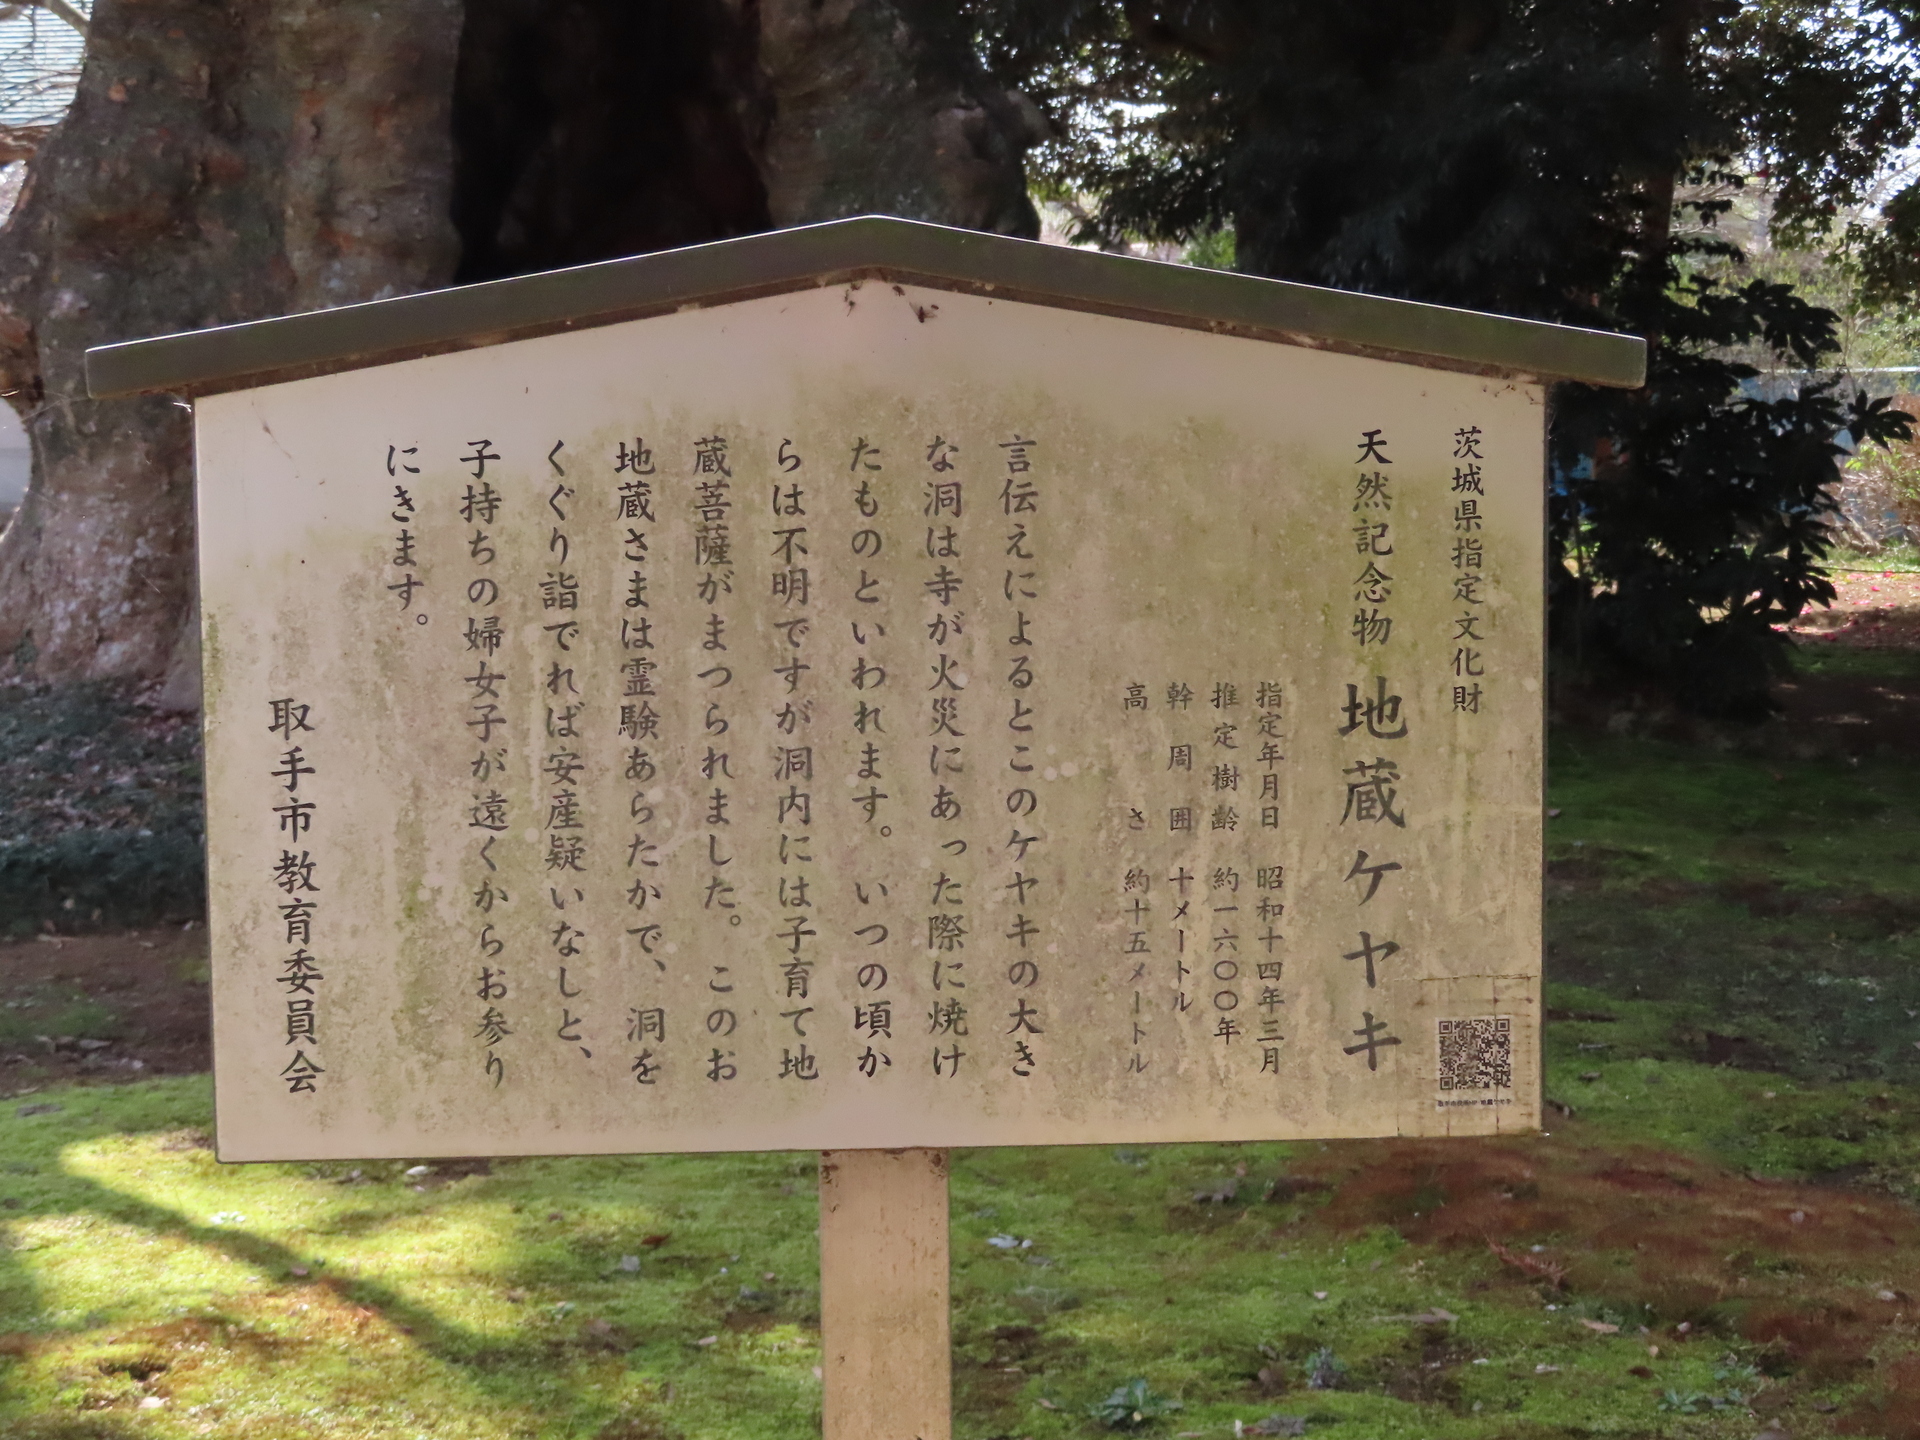 茨城県指定文化財
天然記念物 地蔵ケヤキ
指定年月日 昭和十四年三月
推定樹齢 約一六〇〇年
幹周囲 十メートル
高さ 約十五メートル
言伝えによるとこのケヤキの大き
な洞は寺が火災にあった際に焼け
たものといわれます。いつの頃か
らは不明ですが洞内には子育て地
蔵菩薩がまつられました。このお
地蔵さまは霊験あらたかで、洞を
くぐり詣でれば安産疑いなしと、
子持ちの婦女子が遠くからお参り
にきます。
取手市教育委員会